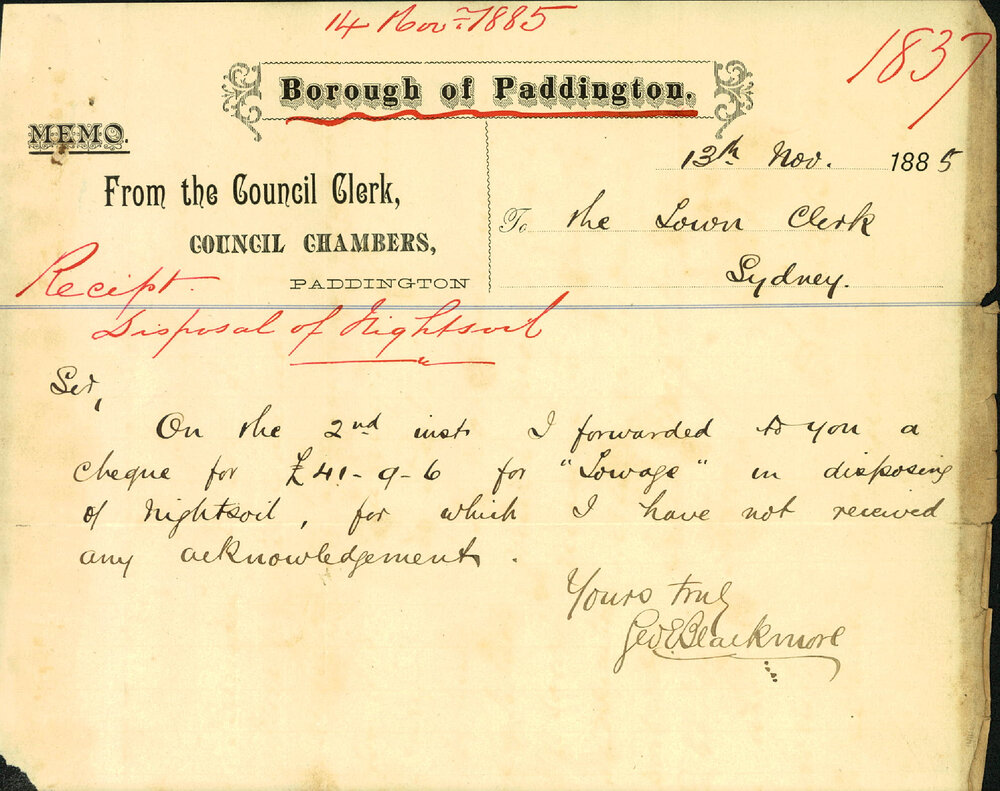 14 Novr 1885
1837
Borough of Paddington.
MEMO.
13th Nov. 1885
From the Council Clerk,
COUNCIL CHAMBERS,
PADDINGTON
To the Town Clerk
Sydney.
Receipt
Disposal of Nightsoil
Sir,
On the 2nd inst I forwarded to you a
cheque for £41-9-6 for "Towage" in disposing
of nightsoil, for which I have not received
any acknowledgement.
Yours truly
Geo E Blackmore